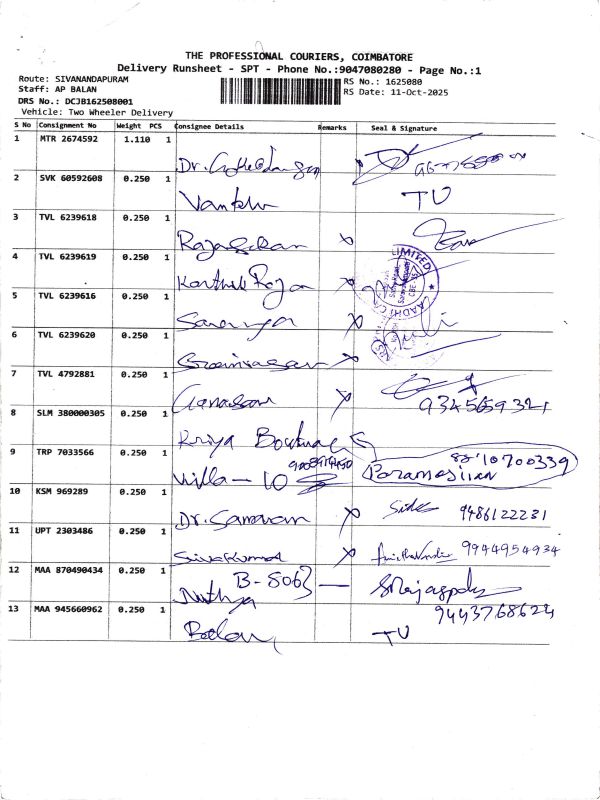 THE PROFESSIONAL COURIERS, COIMBATORE
Delivery Runsheet - SPT - Phone No.:9047080280 - Page No.:1
Route: SIVANANDAPURAM
RS No.: 1625080
Staff: AP BALAN
RS Date: 11-Oct-2025
DRS No.: DCJB162508001
Vehicle: Two Wheeler Delivery
S No Consignment No Weight PCS Consignee Details Remarks Seal & Signature
1 MTR 2674592 1.110 1 Dr.
2 SVK 60592608 0.250 1 TU
3 TVL 6239618 0.250 1 Rajasekaran
4 TVL 6239619 0.250 1 Karthik Raja LIMITED
5 TVL 6239616 0.250 1 Saranya
6 TVL 6239620 0.250 1 Sreenivasan
7 TVL 4792881 0.250 1 Ganesan 9345659321
8 SLM 380000305 0.250 1 Kriya
9 TRP 7033566 0.250 1 Villa - 10 8810700339
10 KSM 969289 0.250 1 Dr. Saravan 9486122231
11 UPT 2303486 0.250 1 Sivakumar 9944954934
12 MAA 870490434 0.250 1 B-8063 Nithya
13 MAA 945660962 0.250 1 Balan TU 9443768624